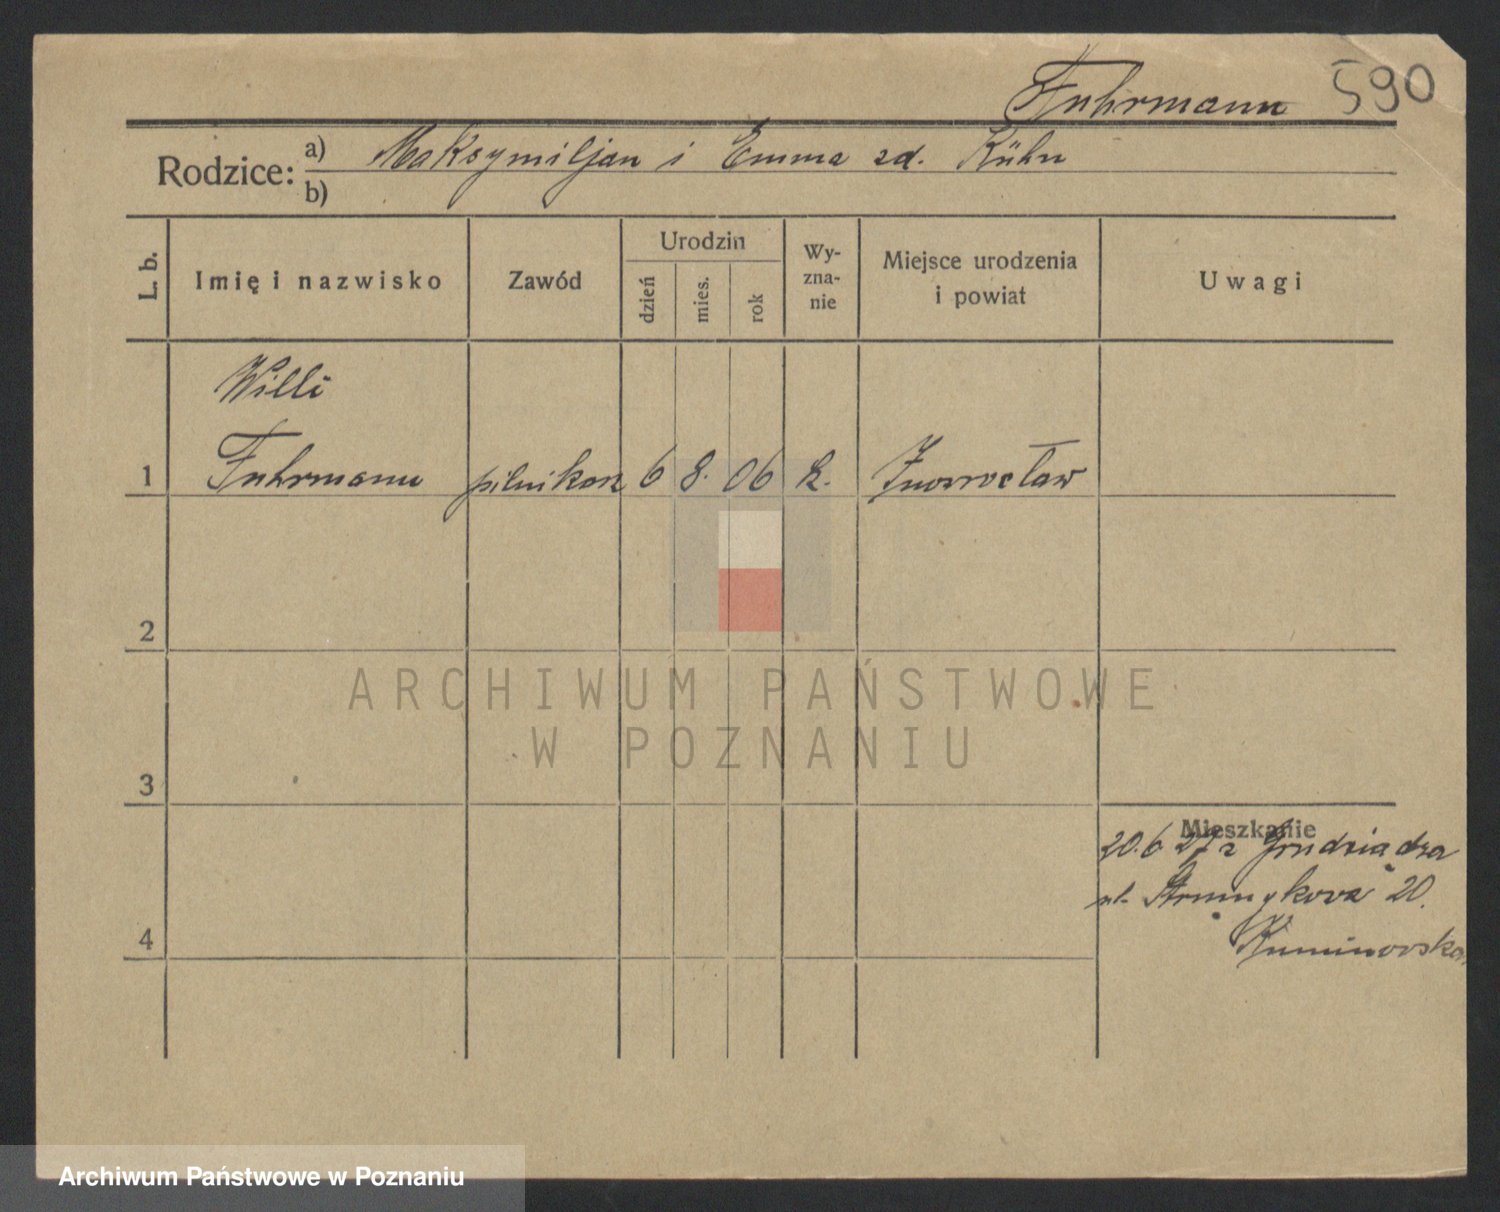 Fuhrmann 590
Rodzice: a) Maksymiljan i Emma zd. Kühn
b)
L. b. Imię i nazwisko Zawód Urodzin dzień mies. rok Wy-zna-nie Miejsce urodzenia i powiat Uwagi
Willi
1 Fuhrmann pilnikarz 6 8. 06 k. Inowrocław
2
ARCHIWUM PAŃSTWOWE
W POZNANIU
3
Mieszkanie
20.6 27 z Grudziądza
ul. 20.
4
Archiwum Państwowe w Poznaniu